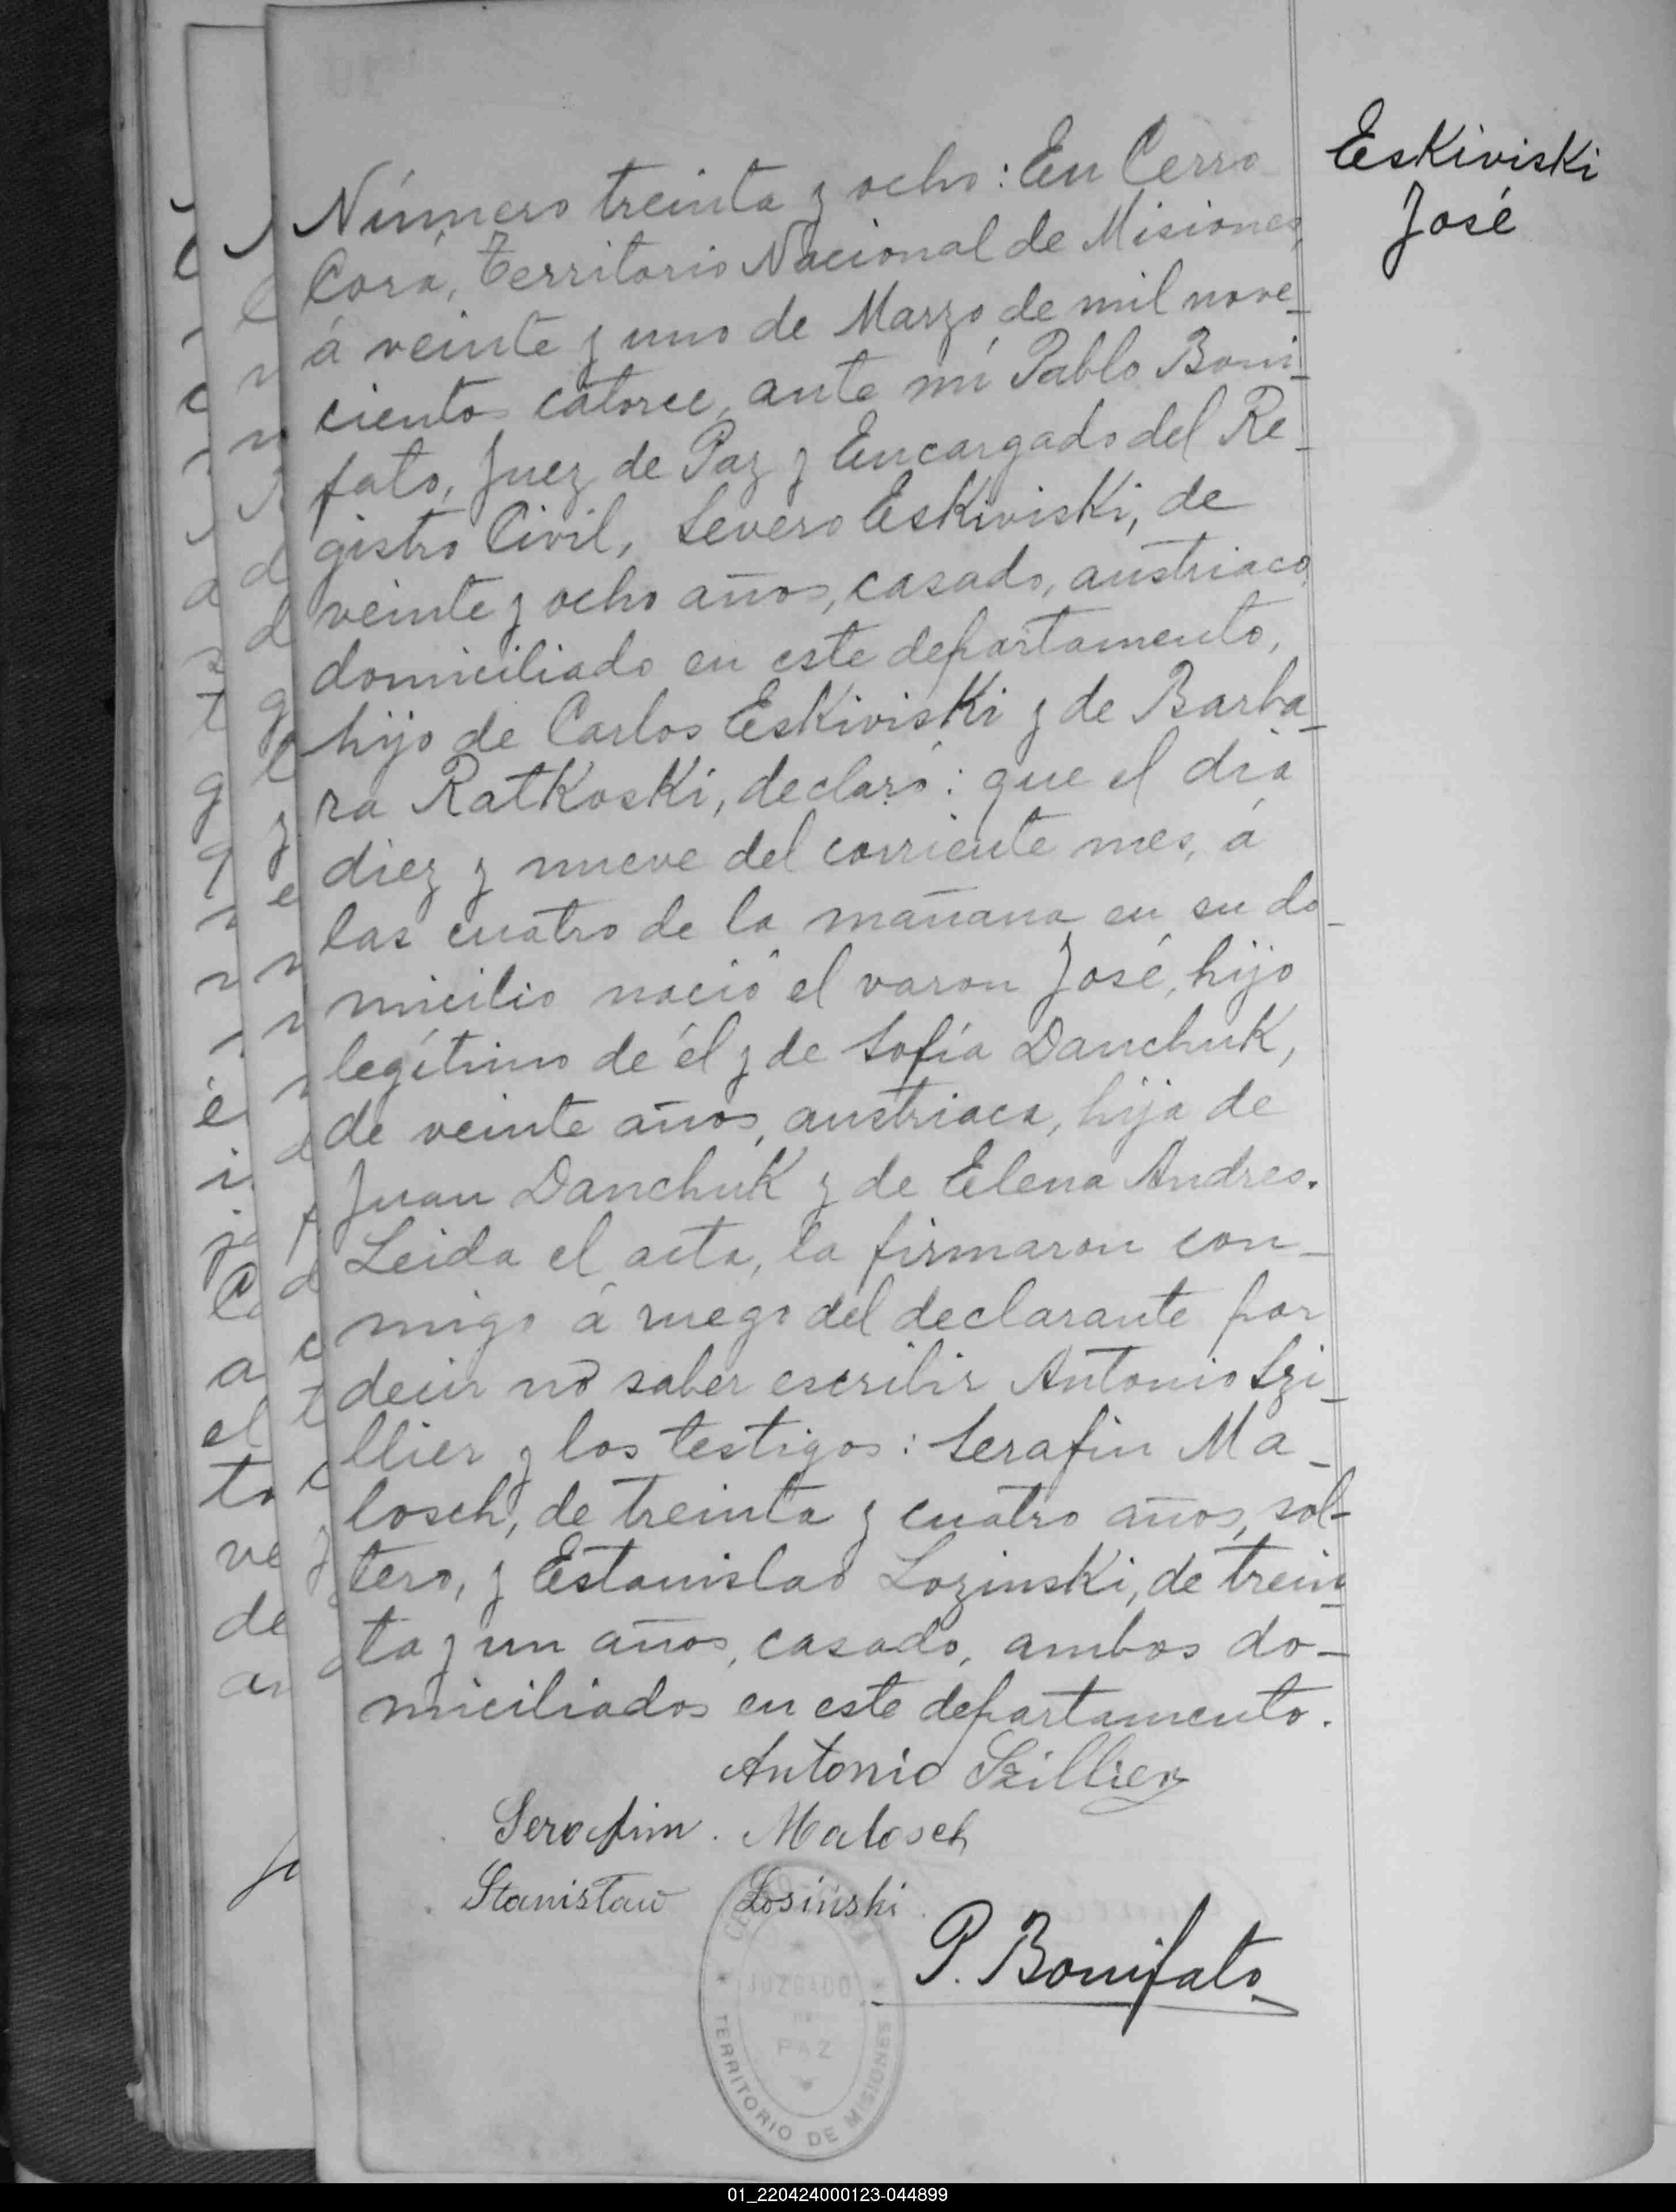 Eskiviski
José
Número treinta y ocho: En Cerro
Corá, Territorio Nacional de Misiones,
á veinte y uno de Marzo de mil nove-
cientos catorce, ante mí Pablo Boni-
fato, Juez de Paz y Encargado del Re-
gistro Civil, Severo Eskiviski, de
veinte y ocho años, casado, austriaco,
domiciliado en este departamento,
hijo de Carlos Eskiviski y de Barba-
ra Ratkoski, declaró: que el dia
diez y nueve del corriente mes, á
las cuatro de la mañana en su do-
micilio nació el varon José, hijo
legítimo de él y de Sofía Danchuk,
de veinte años, austriaca, hija de
Juan Danchuk y de Elena Andres.
Leida el acta, la firmaron con-
migo á ruego del declarante por
decir no saber escribir Antonio Szi-
llier y los testigos: Serafin Ma-
losch, de treinta y cuatro años, sol-
tero, y Estanislao Lozinski, de trein-
ta y un años, casado, ambos do-
miciliados en este departamento.
Antonio Szillier
Serafim. Malosch
Stanisław Łosiński.
P. Bonifato
JUZGADO
DE
PAZ
TERRITORIO DE MISIONES
01_220424000123-044899